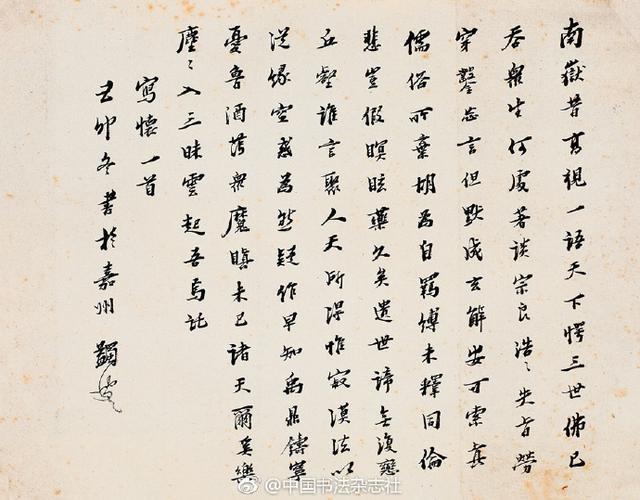 南嶽昔高視一語天下愕三世佛已
吞眾生何處著談宗良浩〻失旨勞
穿鑿忘言但默成玄解安可索真
儒俗所棄胡為自羈縛未釋同倫
悲豈假瞑眩藥久矣遺世諦無復戀
丘壑誰言聚人天所得惟寂漠法以
從緣空惑為然疑作早知禹鼎鑄寧
憂魯酒薄眾魔瞋未已諸天爾奚樂
塵〻入三昧雲起吾焉託
寫懷一首
己卯冬書於嘉州 蠲叟
@中国书法杂志社